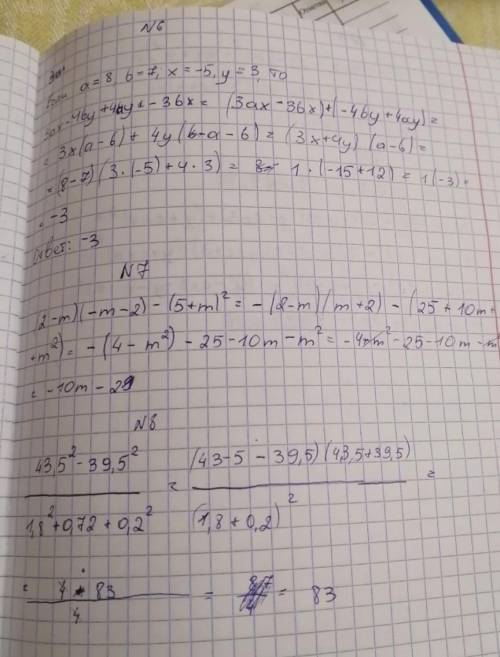 N6
Если a = 8, b = 7, x = -5, y = 3, то
3ax - 4by + 4ay - 3bx = (3ax - 3bx) + (-4by + 4ay) =
= 3x(a - b) + 4y(b - a - b) = (3x + 4y)(a - b) =
= (8 - 7)(3 · (-5) + 4 · 3) = 1 · (-15 + 12) = 1(-3) =
= -3
Ответ: -3
N7
(2 - m)(-m - 2) - (5 + m)² = -(2 - m)(m + 2) - (25 + 10m +
+ m²) = -(4 - m²) - 25 - 10m - m² = -4 + m² - 25 - 10m - m²
= -10m - 29
N8
43,5² - 39,5² / 1,8² + 0,72 + 0,2² = (43-5 - 39,5)(43,5 + 39,5) / (1,8 + 0,2)² =
= 4 · 83 / 4 = 83